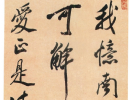 我憶南
可解
愛正是